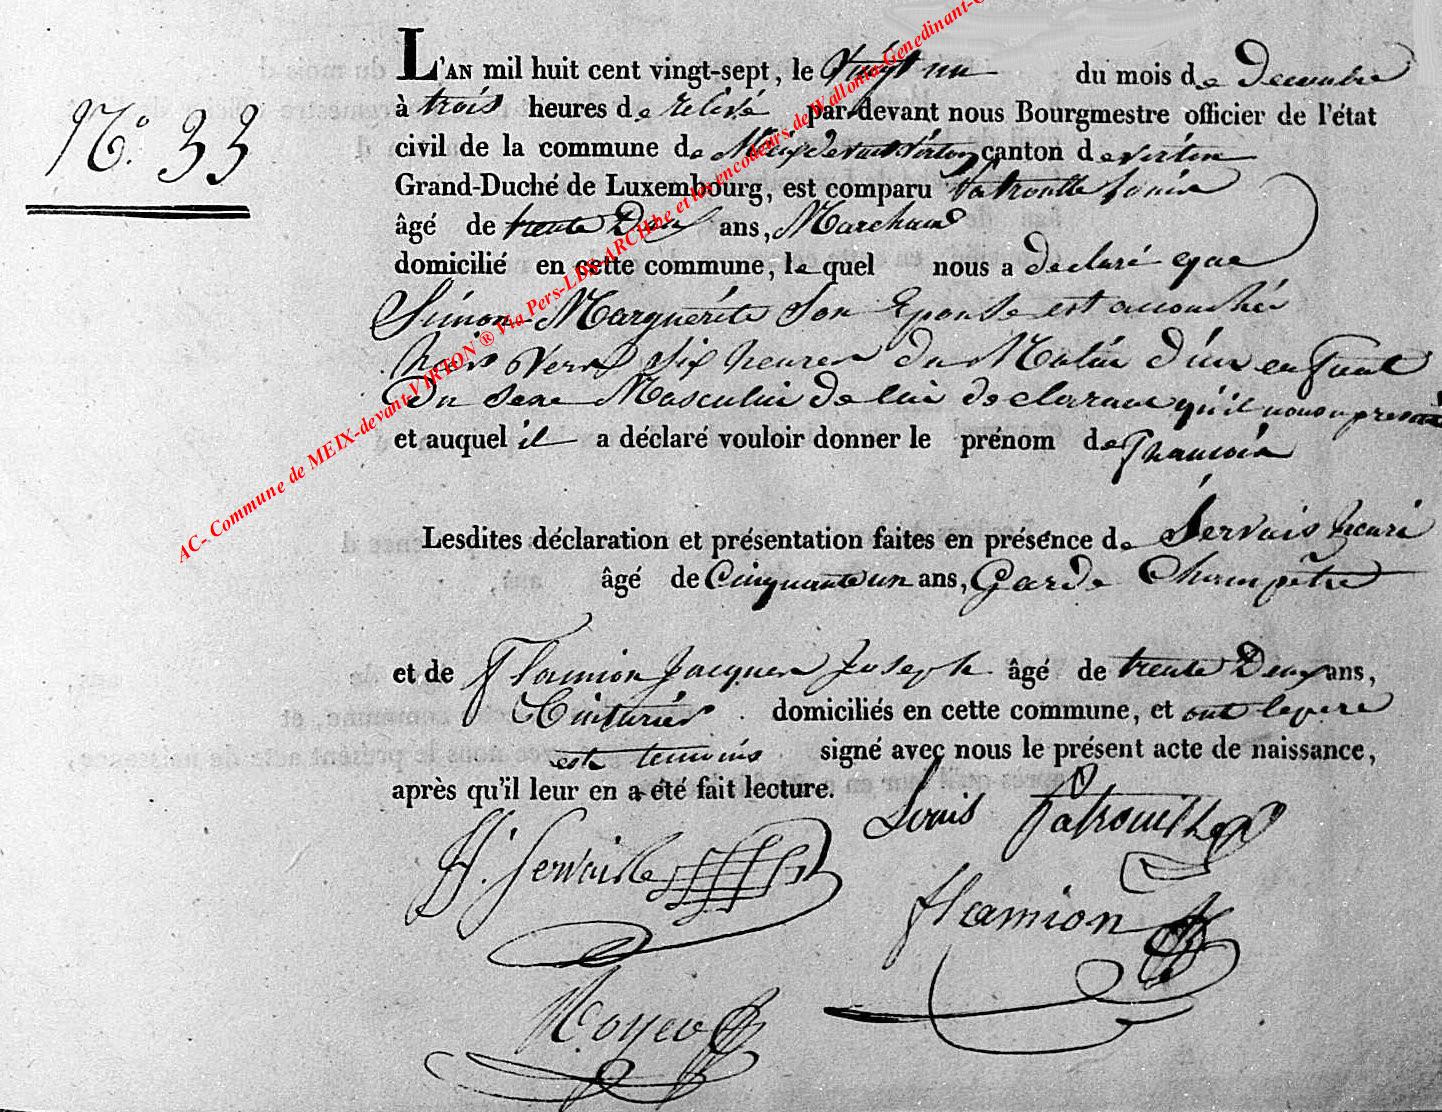 N.° 33
L'AN mil huit cent vingt-sept, le Vingt un du mois de Decembre
à trois heures de relevé par-devant nous Bourgmestre officier de l'état
civil de la commune de Meix devant Virton canton de virton
Grand-Duché de Luxembourg, est comparu Patrouille Louis
âgé de trente Deux ans, Marchand
domicilié en cette commune, le quel nous a declaré que
Simon Marguérite Son Epouse est accouchée
hers vers six heures du Matin d'un enfant
Du sexe Masculin de lui declarant qu'il nous a presenté
et auquel il a déclaré vouloir donner le prénom de Francois
Lesdites déclaration et présentation faites en présence de Servais henri
âgé de Cinquante un ans, Garde Champêtre
et de Flamion Jacques Joseph âgé de trente Deux ans,
domiciliés en cette commune, et ont le pere
est temoins signé avec nous le présent acte de naissance,
après qu'il leur en a été fait lecture.
Louis Patrouille
H. Servais
flamion
AC- Commune de MEIX-devant-VIRTON ® Via Pers-LDS-ARCH.be et les encodeurs de Wallonia-Genedinant-